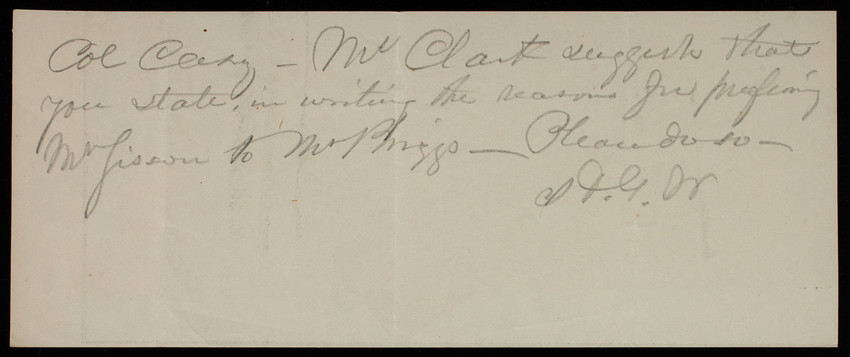 Col Casey – Mr Clark suggests that
you state, in writing the reasons for prefering
Mr Sisson to Mr Phipps – Please do so –